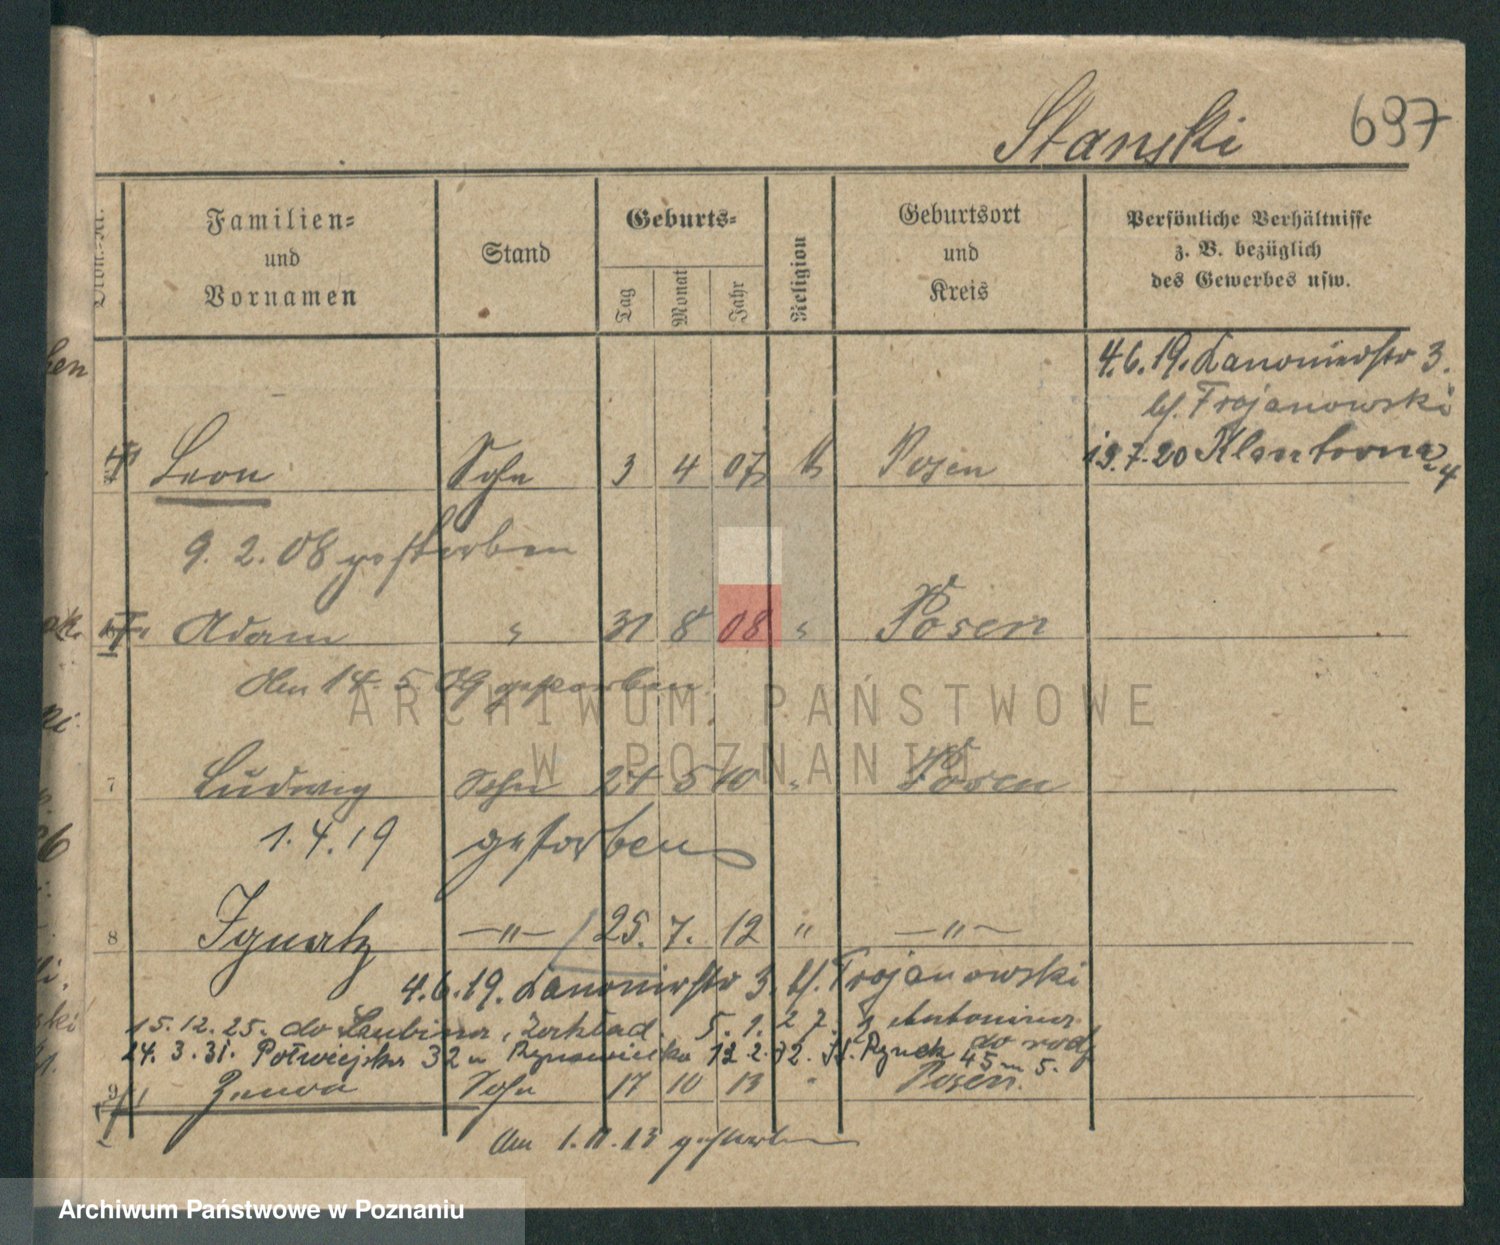 Stanski 697
Familien=
und
Vornamen
Stand
Geburts=
Tag
Monat
Jahr
Religion
Geburtsort
und
Kreis
Persönliche Verhältnisse
z. B. bezüglich
des Gewerbes usw.
4.6.19. Kanonierstr 3.
b/. Trojanowski
Leon Sohn 3 4 07 k Posen
13.7.20
9. 2. 08 gestorben
Adam " 31 8 08 " Posen
den 14. 5 09 gestorben
7 Ludwig Sohn 24 5 10 " Posen
1.4.19 gestorben
8 Ignatz —"— 25. 7. 12 " —"—
4.6.19. Kanonierstr 3. b/. Trojanowski
15.12.25. do Lubina, Zakład. 5.1.27. Antonina
do rodz
24.3.31. Półwiejska 32 12.2.32. St. Rynek 45 m 5.
9 Zenon Sohn 17 10 13 " Posen.
den 1.11.13 gestorben
ARCHIWUM PAŃSTWOWE
W POZNANIU
Archiwum Państwowe w Poznaniu